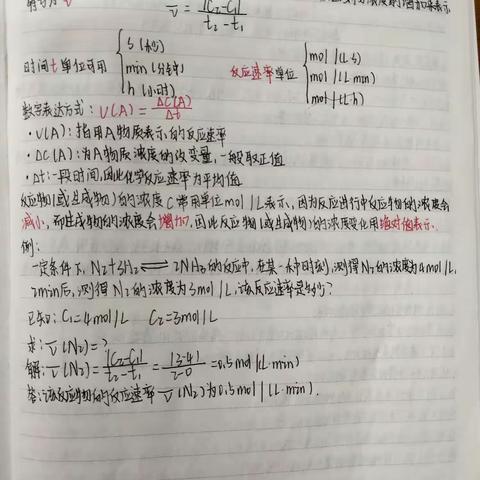 v̅ = |C₂-C₁| / t₂-t₁
时间t单位可用 { s (秒) min (分钟) h (小时) 反应速率单位 { mol/(L·s) mol/(L·min) mol/(L·h)
数学表达方式: V(A) = ΔC(A)/Δt
·V(A): 指用A物质表示的反应速率
·ΔC(A): 为A物质浓度的改变量,一般取正值
·Δt: 一段时间,因此化学反应速率为平均值
反应物(或生成物)的浓度C常用单位mol/L表示,因为反应进行中反应物的浓度会
减小,而生成物的浓度会增加,因此反应物(或生成物)的浓度变化用绝对值表示.
例:
一定条件下, N₂+3H₂⇌2NH₃的反应中,在某一时刻,测得N₂的浓度为4mol/L,
2min后,测得N₂的浓度为3mol/L,该反应速率是多少?
已知: C₁=4mol/L C₂=3mol/L
求: v̅(N₂)=?
解: v̅(N₂) = |C₂-C₁| / t₂-t₁ = |3-4| / 2-0 = 0.5mol/(L·min)
答: 该反应物的反应速率v̅(N₂)为0.5mol/(L·min).